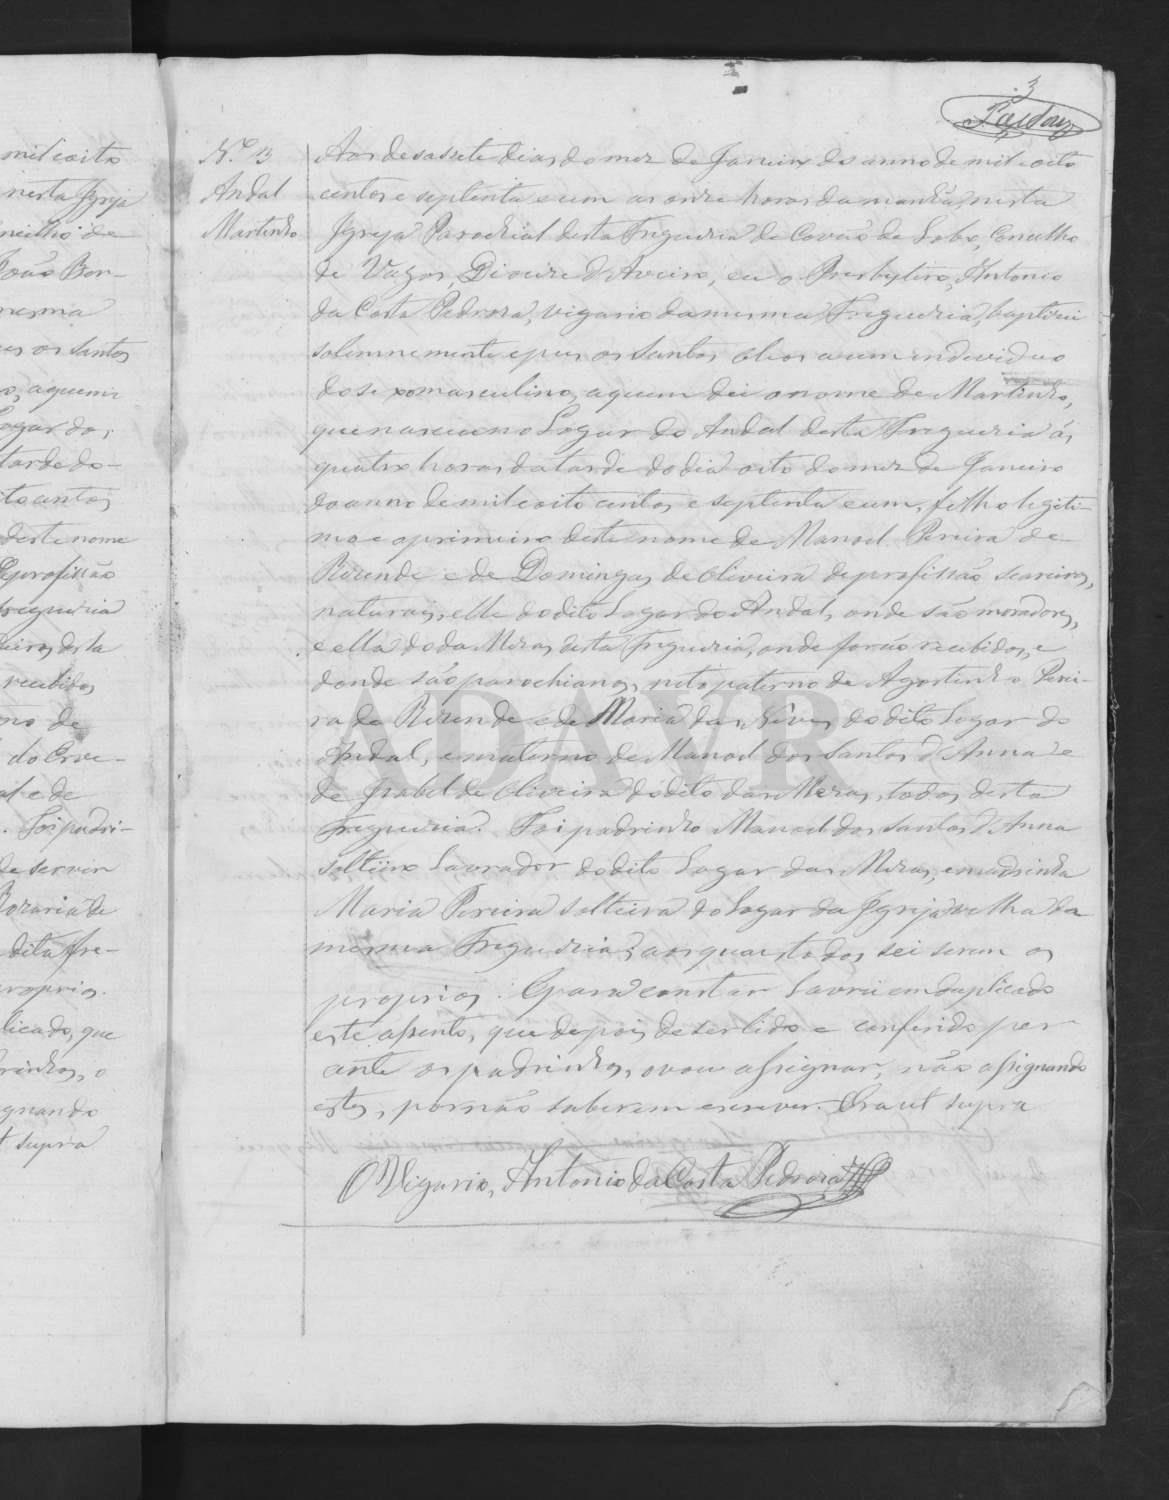 3
N.º 13
Andal
Martinho
Aos desassete dias do mez de Janeiro do anno de mil e oito
centos e septenta e um as onze horas da manhã, nesta
Igreja Parochial desta Freguezia de Covão do Lobo, Concelho
de Vagos, Diocese d'Aveiro, eu o Presbytero, Antonio
da Costa Pedrosa, vigario da mesma Freguezia, baptizei
solemnemente e puz os Santos oleos a um individuo
do sexo masculino, a quem dei o nome de Martinho,
que nasceu no Logar do Andal desta Freguezia ás
quatro horas da tarde do dia oito do mez de Janeiro
do anno de mil e oito centos e septenta e um, filho legiti-
mo e o primeiro deste nome de Manoel Pereira de
Rezende e de Domingas de Oliveira de profissão seareiros,
naturaes, elle do dito Logar do Andal, onde são moradores,
e ella do da Mezas desta Freguezia, onde forão recebidos, e
donde são parochianos, neto paterno de Agostinho Perei-
ra de Rezende e de Maria das Neves do dito Logar do
Andal, e materno de Manoel dos Santos d'Anna e
de Izabel de Oliveira do dito das Mezas, todos desta
Freguezia. Foi padrinho Manoel dos Santos d'Anna
solteiro Lavrador do dito Logar das Mezas, e madrinha
Maria Pereira solteira do Logar da Igreja velha da
mesma Freguezia, aos quaes todos sei serem os
proprios. E para constar lavrei em duplicado
este assento, que depois de ser lido e conferido per
ante os padrinhos, o vou assignar, não assignando
estes, por não saberem escrever. Era ut supra
O Vigario, Antonio da Costa Pedrosa
mil e oito
nesta Igreja
ncelho de
mesma
os santos
a quem
Logar do
tarde do
centos
deste nome
de profissão
freguezia
desta
recebidos
no de
e de
Foi padri-
de servir
dita fre-
proprios.
licado, que
drinhos, o
gnando
supra
ADAVR